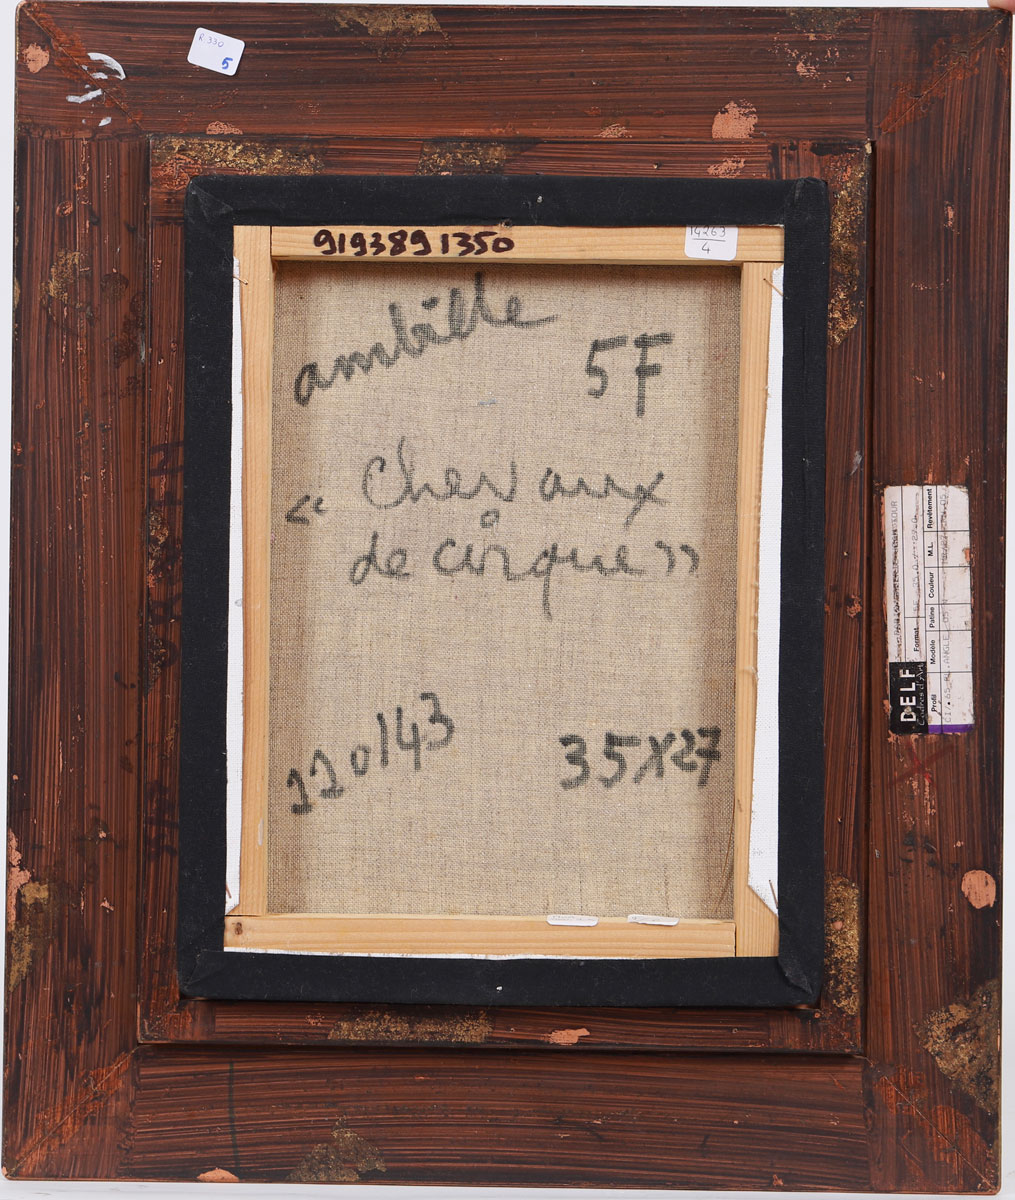 R.330
5
9193891350
14263
4
ambille
5F
« Chevaux
de cirque »
220143
35x27
DELF
Cadres d'Art
Profil
Modèle
Patine
Couleur
M.L.
Revêtement
Format
ANGLE